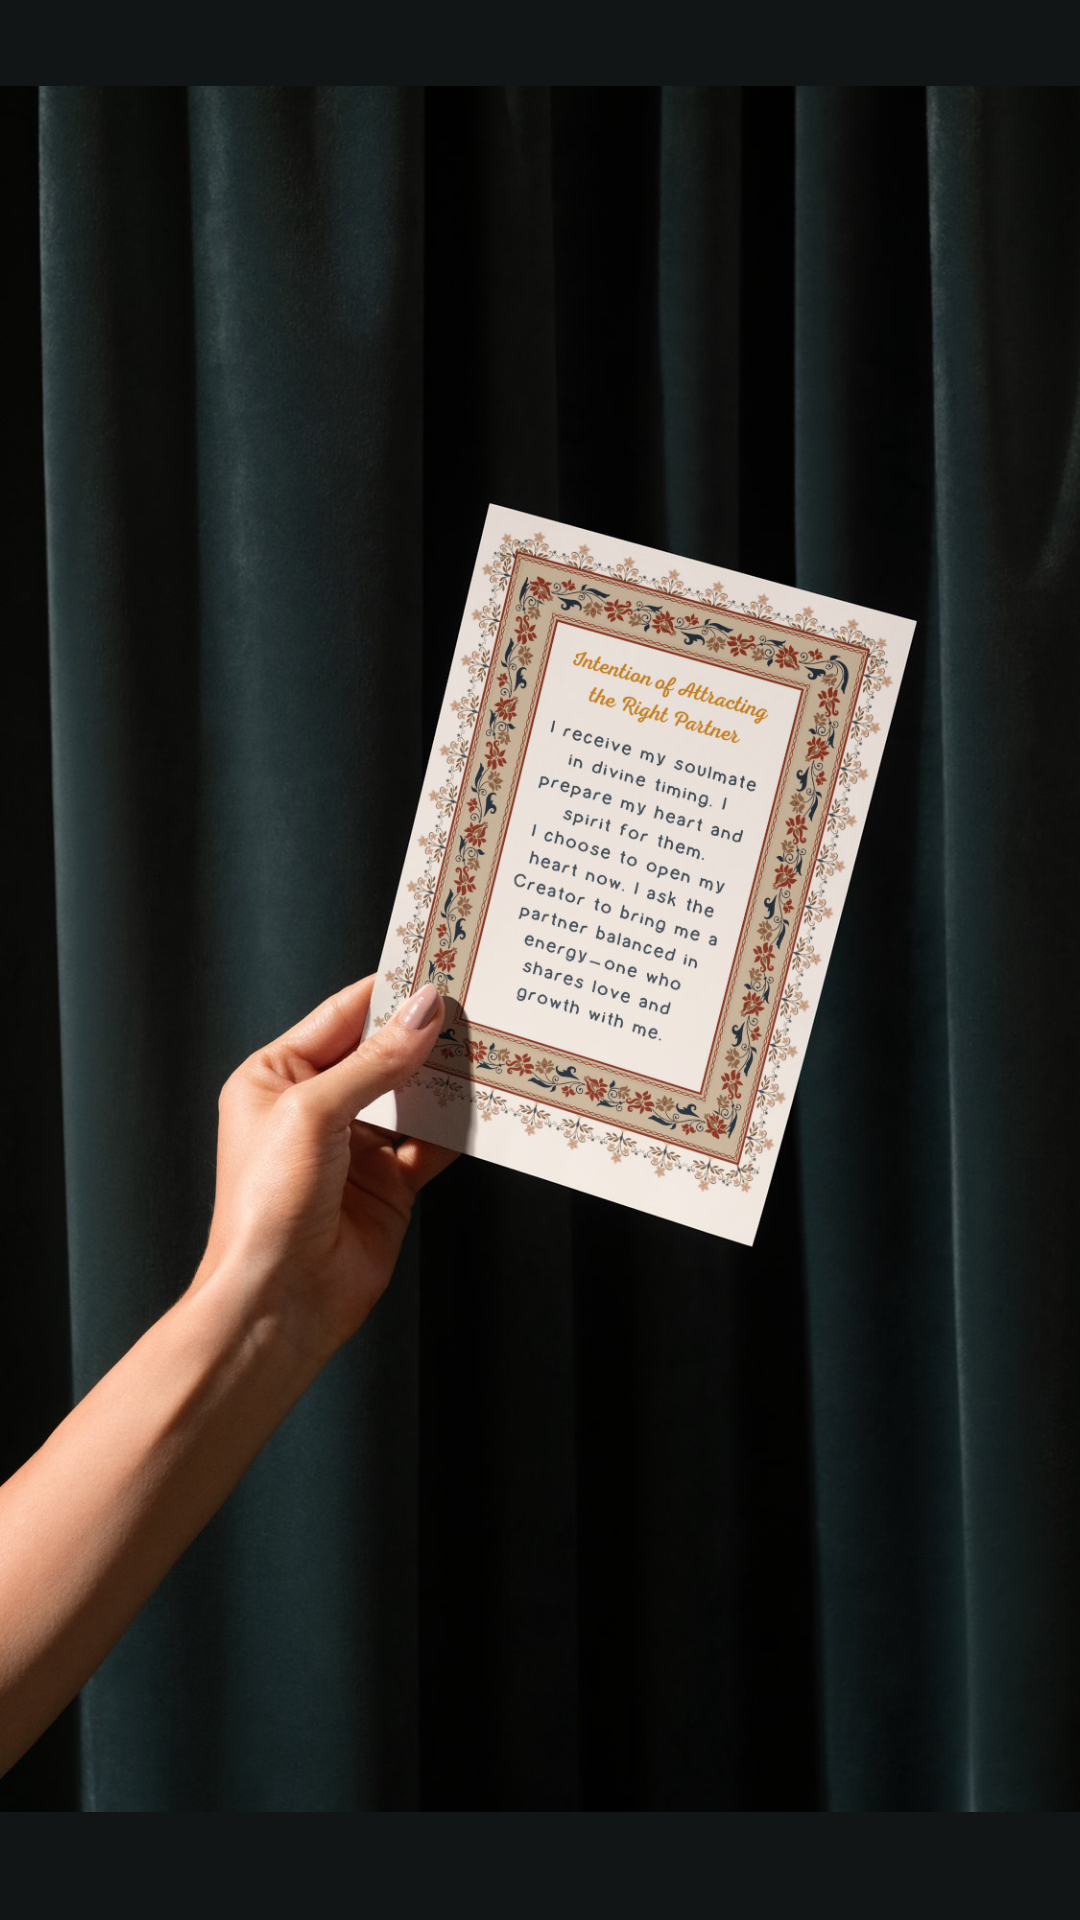 Intention of Attracting
the Right Partner
I receive my soulmate
in divine timing. I
prepare my heart and
spirit for them.
I choose to open my
heart now. I ask the
Creator to bring me a
partner balanced in
energy—one who
shares love and
growth with me.